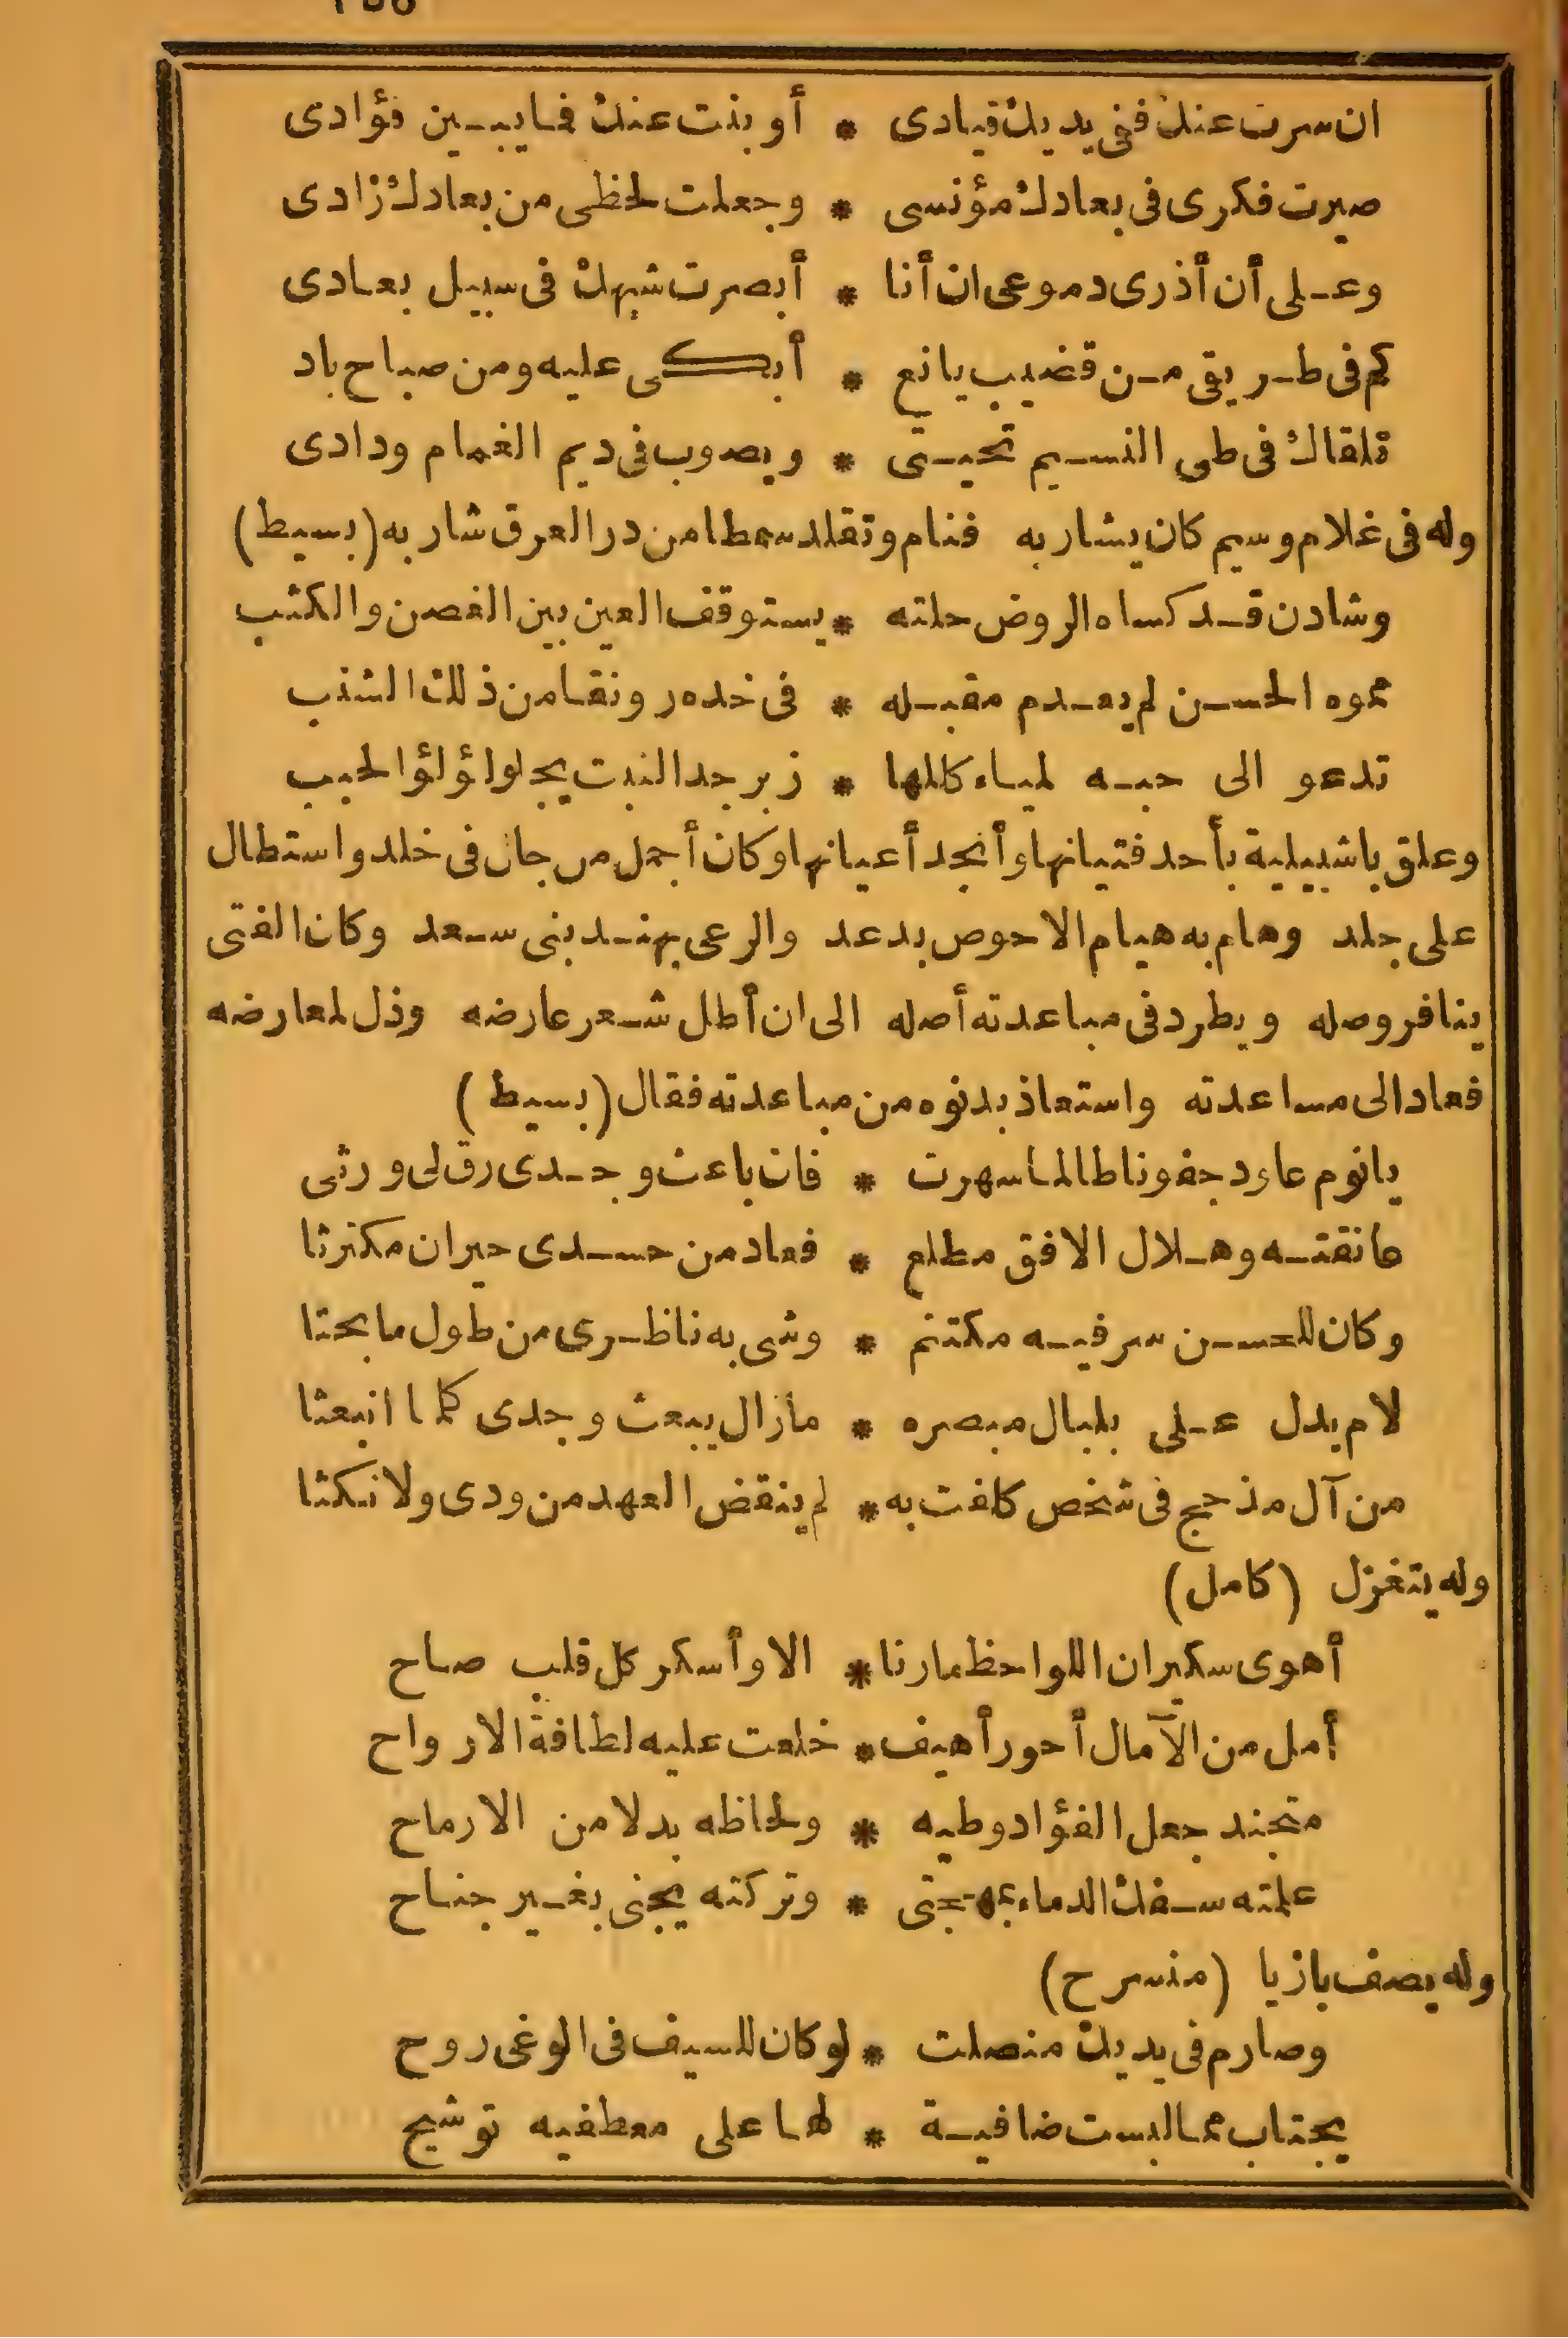 ان سرت عنك ففى يديك قيادى * أو بنت عنك فما يبين فؤادى
صيرت فكرى فى بعادك مؤنسى * وجعلت لحظى من بعادك زادى
وعلى أن أذرى دموعى ان أنا * أبصرت شبهك فى سبيل بعادى
كم فى طريقى من قضيب يانع * أبكى عليه ومن صباح باد
تلقاك فى طى النسيم تحيتى * ويصوب فى ديم الغمام ودادى
وله فى غلام وسيم كان يشار به فنام وتقلد سمطا من در العرق شار به (بسيط)
وشادن قد كساه الروض حلته * يستوقف العين بين الغصن والكثب
مموه الحسن لم يعدم مقبله * فى خده رونقا من ذلك الشنب
تدعو الى حبه لمياء كللها * زبرجد النبت يجلو لؤلؤ الحبب
وعلق باشبيلية بأحد فتيانها وأنجد أعيانها وكان أجمل من جال فى خلد واستطال
على جلد وهام به هيام الاحوص بدعد والرعى بهند بنى سعد وكان الفتى
ينافر وصله ويطرد فى مباعدته أصله الى ان أطل شعر عارضه وذل لمعارضه
فعاد الى مساعدته واستعاذ بدنوه من مباعدته فقال (بسيط)
يا نوم عاود جفونا طالما سهرت * فان باعث وجدى رق لى ورثى
عانقته وهلال الافق مطلع * فعاد من حسدى حيران مكترثا
وكان للحسن سر فيه مكتتم * وشى به ناظرى من طول ما بحثا
لام يدل على بلبال مبصره * ما زال يبعث وجدى كلما انبعثا
من آل مذحج فى شخص كلفت به * لم ينقض العهد من ودى ولا نكثا
وله يتغزل (كامل)
أهوى سكيران اللواحظ ما رنا * الا وأسكر كل قلب صاح
أمل من الآمال أحور أهيف * خلعت عليه لطافة الارواح
متجند جعل الفؤاد وطيه * ولحاظه بدلا من الارماح
علمته سفك الدماء بمهجتى * وتركته يجنى بغير جناح
وله يصف بازيا (منسرح)
وصارم فى يديك منصلت * لو كان للسيف فى الوغى روح
يجتاب مما لبست ضافية * لها على معطفيه توشيح